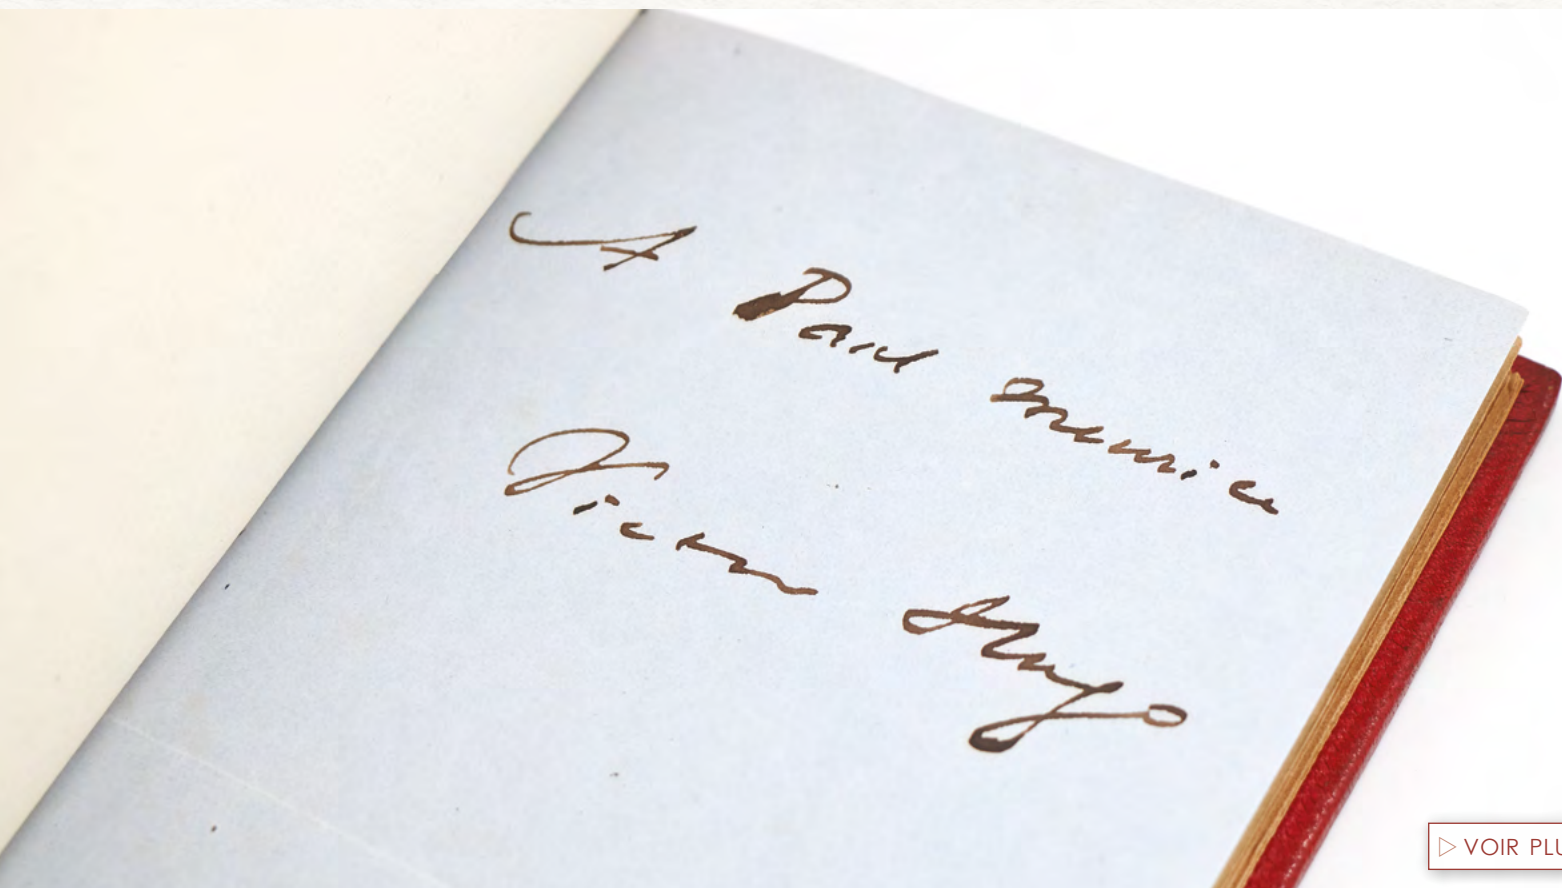 A Paul Meurice
Victor Hugo
VOIR PLU